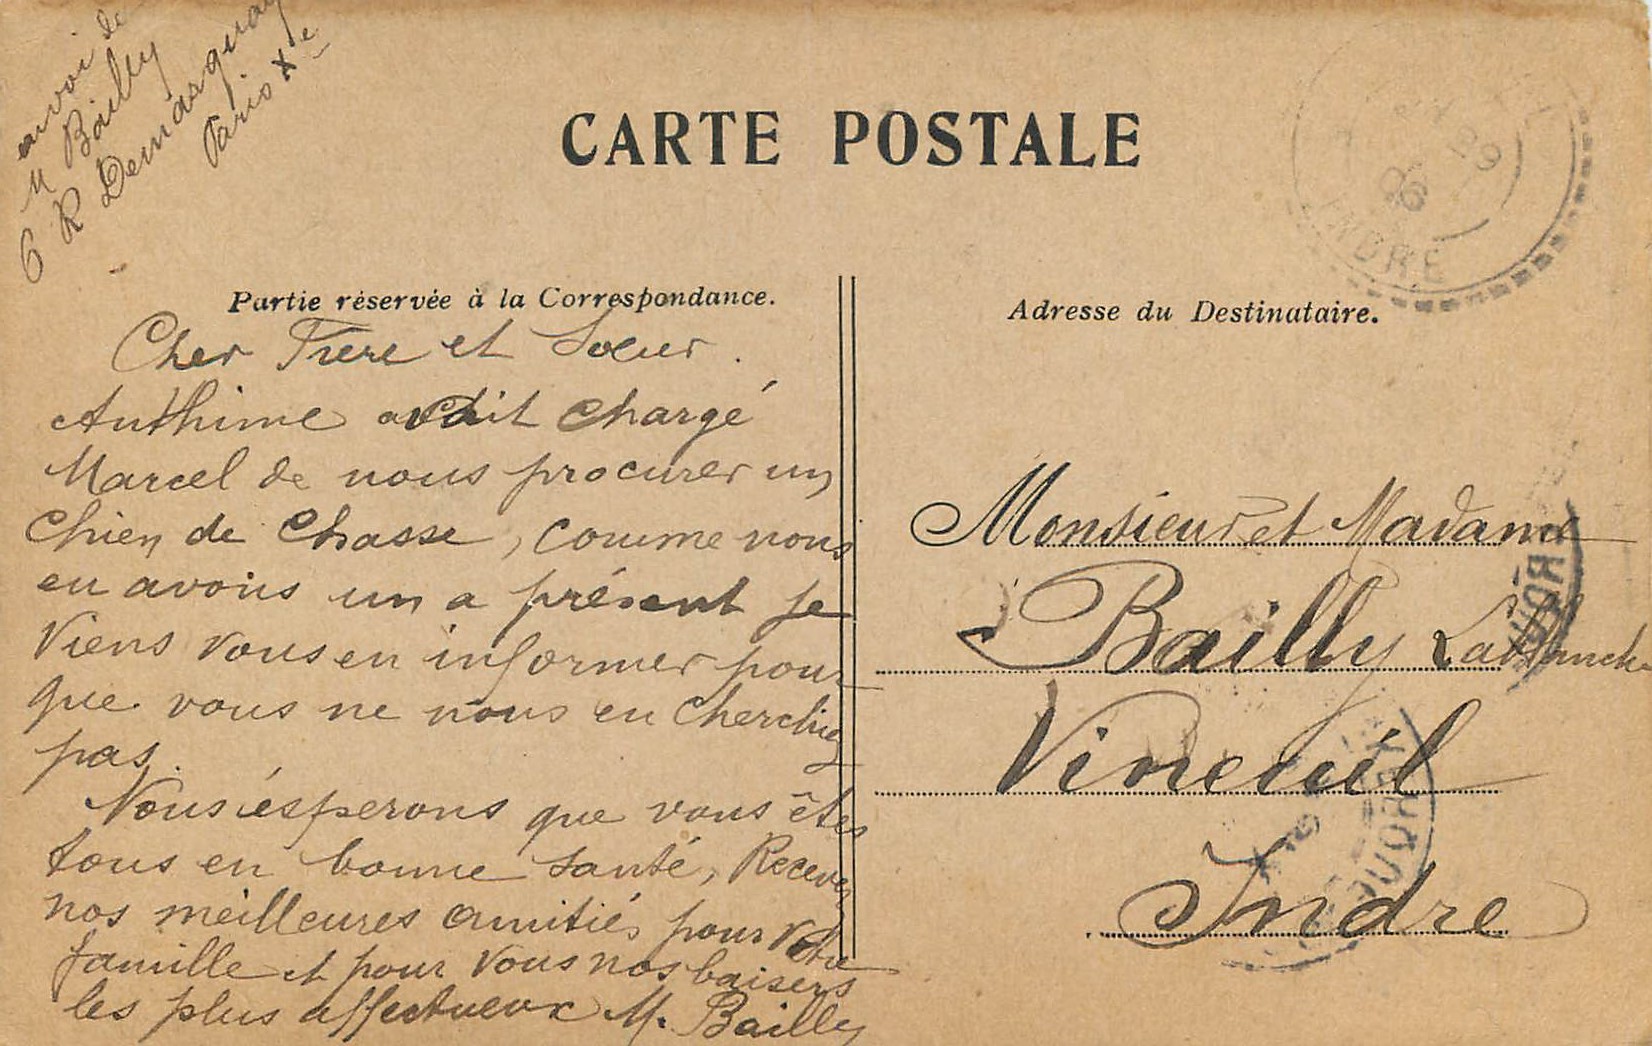 envoi de
M Bailly
6 R Demarquay
Paris Xe
CARTE POSTALE
29
06
INDRE
Partie réservée à la Correspondance.
Cher Frere et Soeur.
Anthime avait chargé
Marcel de nous procurer un
chien de chasse, comme nous
en avons un a présent je
viens vous en informer pour
que vous ne nous en cherchiez
pas.
Nous ésperons que vous êtes
tous en bonne santé, Recevez
nos meilleures amitiés pour votre
famille et pour vous nos baisers
les plus affectueux M. Bailly
Adresse du Destinataire.
Monsieur et Madame
Bailly
Vineuil
Indre